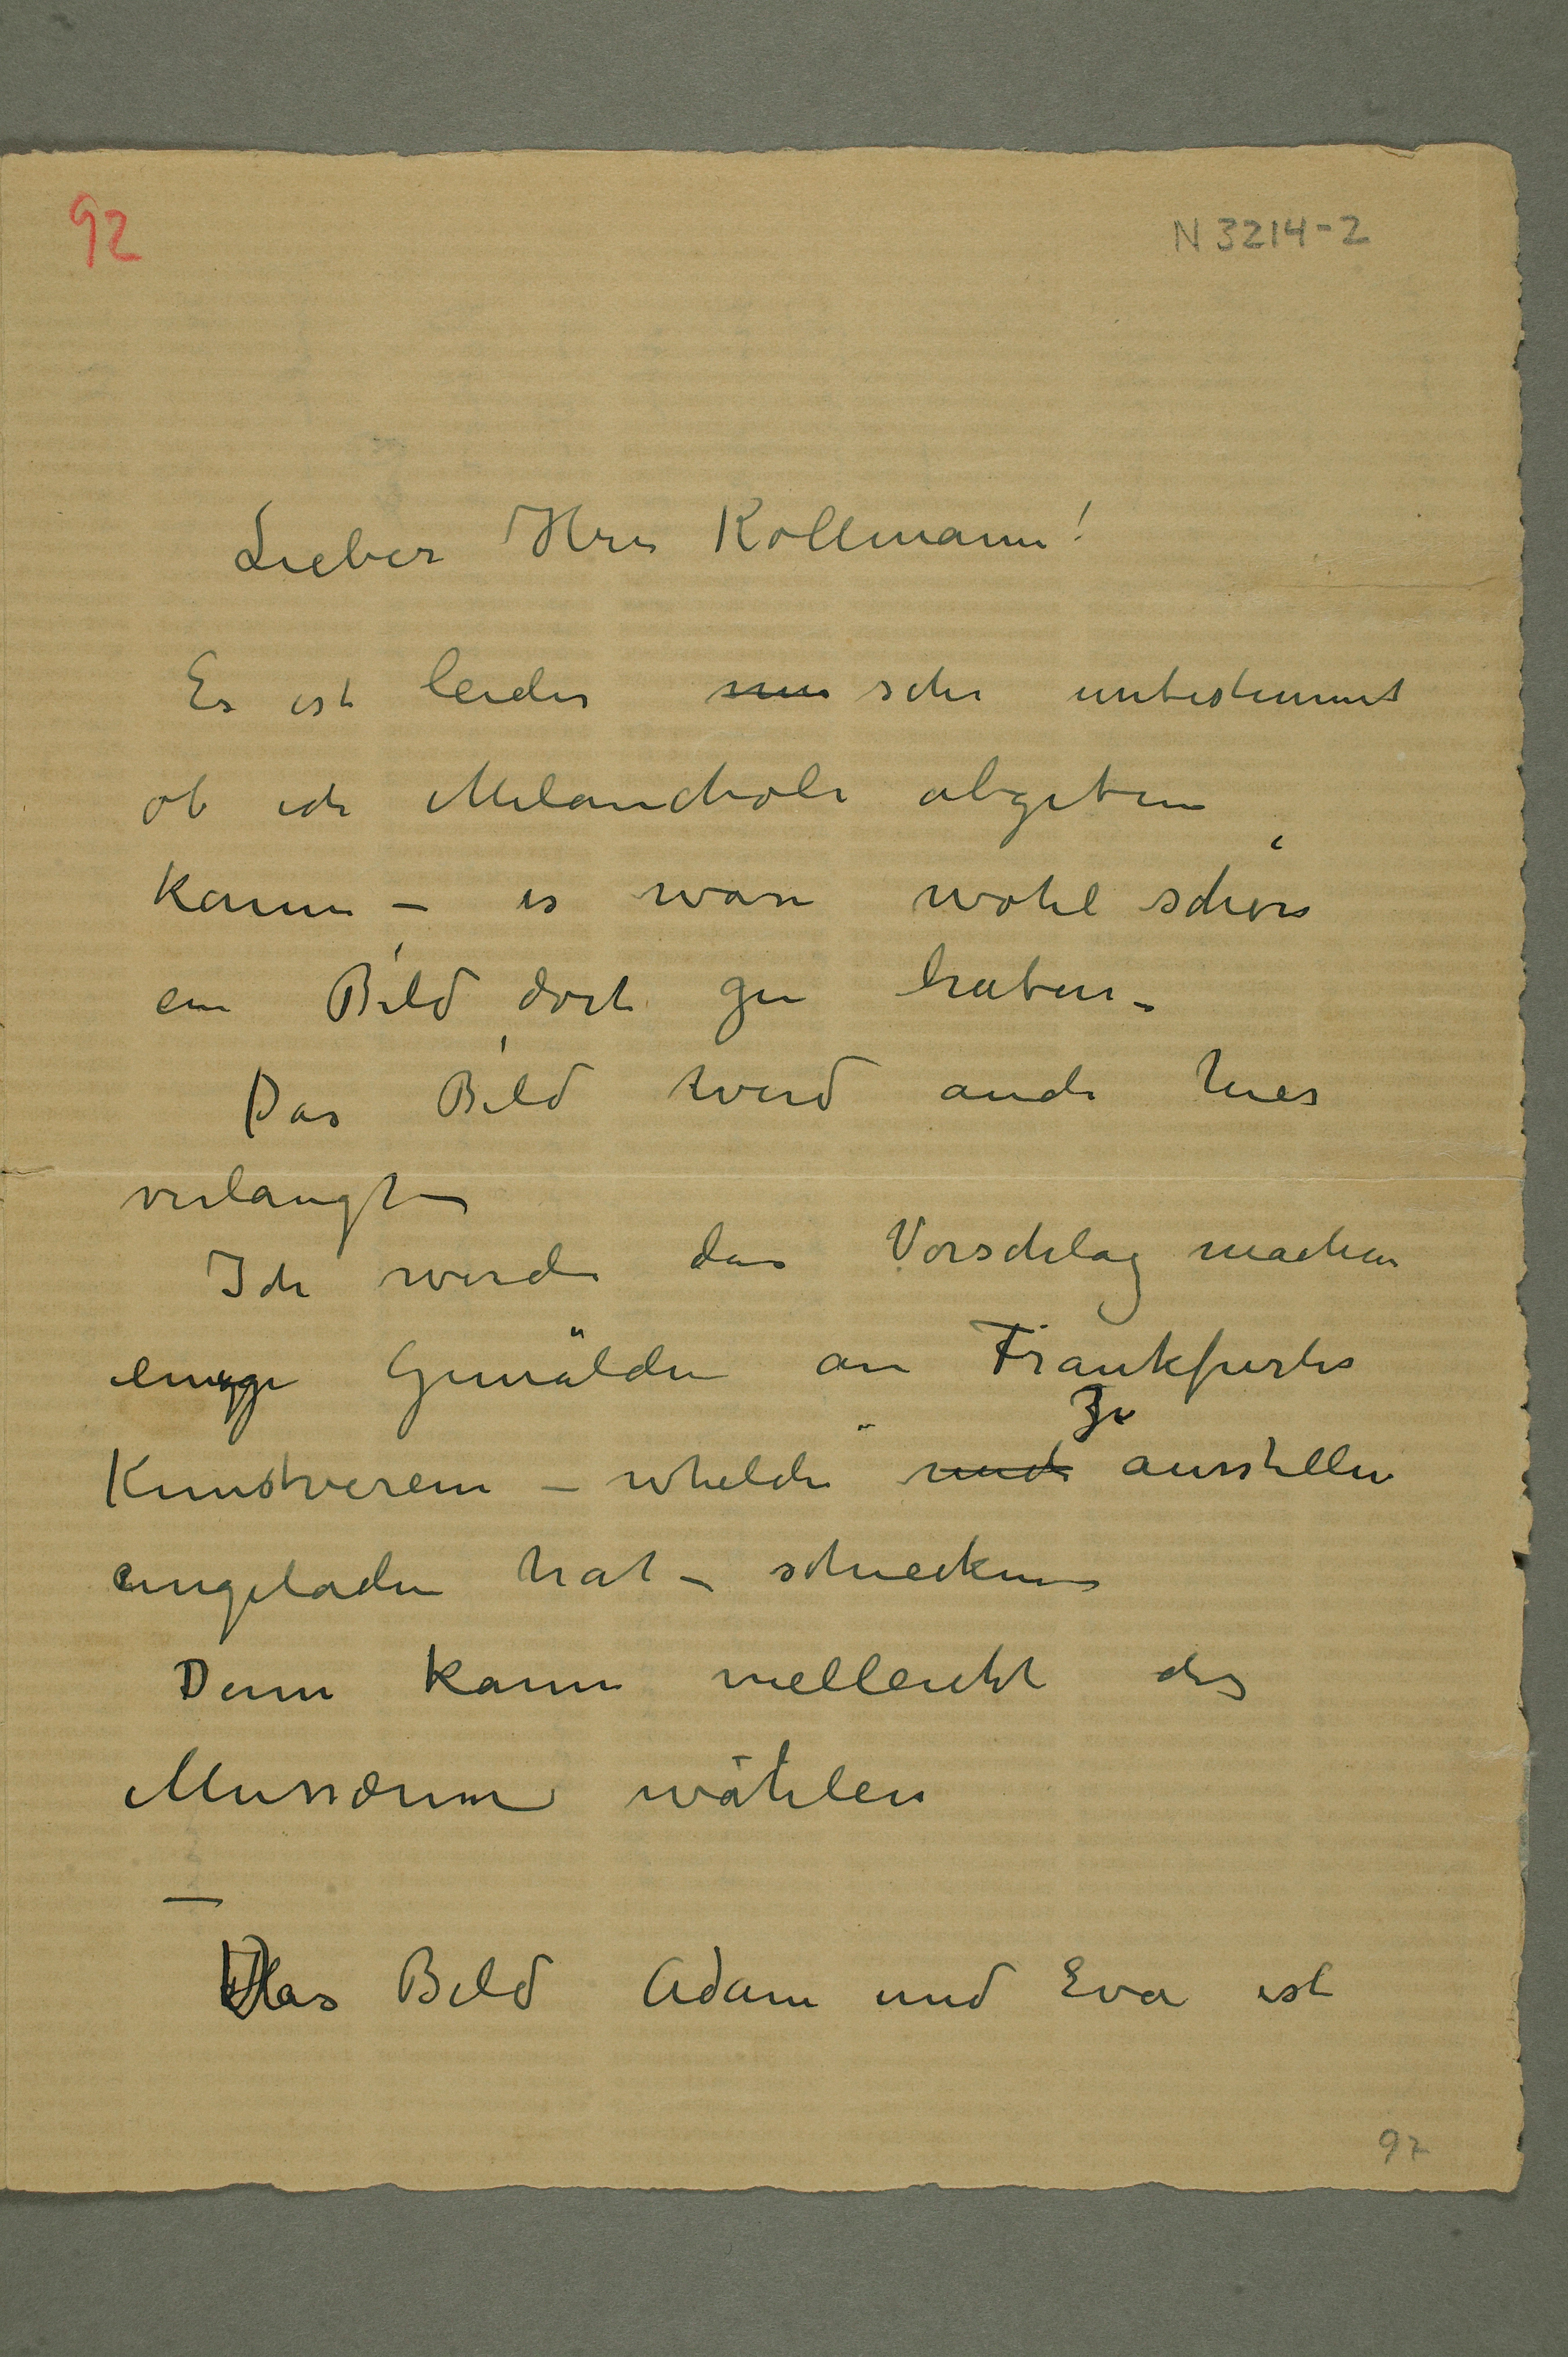 92
N 3214-2
Lieber Herr Kollmann!
Es ist leider sehr unbestimmt
ob ich Melancholi abgeben
kann – es wäre wohl schön
ein Bild dort zu haben –
Das Bild wird auch hier
verlangt –
Ich werde das Vorschlag machen
einige Gemälden an Frankfurter
Kunstverein – whelche mich zu ausstellen
eingeladen hat – schicken
Denn kann vielleicht das
Mussæum wählen
—
Das Bild Adam und Eva ist
97